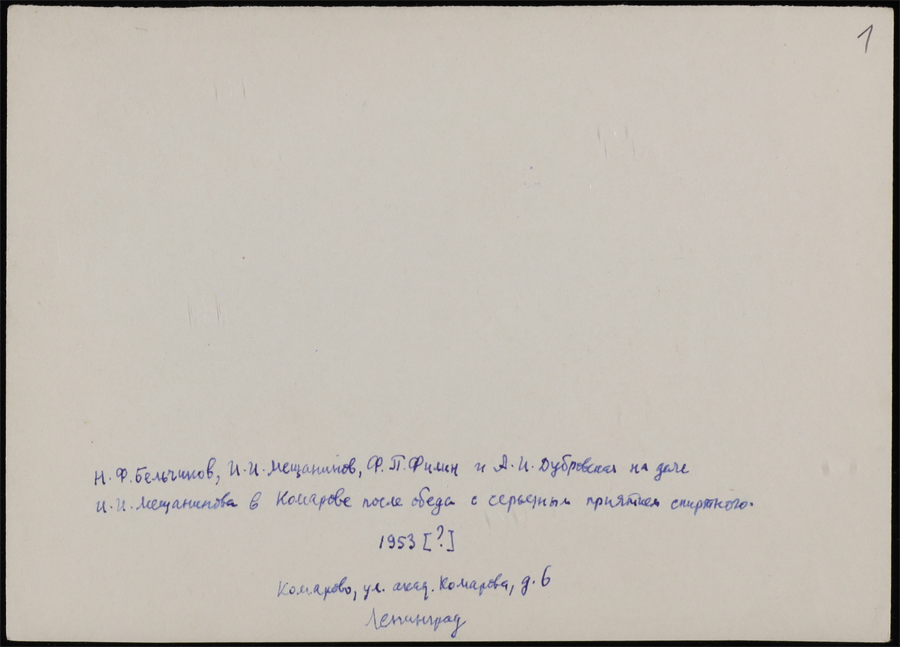 1
Н. Ф. Бельчиков, И. И. Мещанинов, Ф. П. Филин и А. И. Дубровская на даче
И. И. Мещанинова в Комарове после обеда с серьезным приятием спиртного.
1953 [?]
Комарово, ул. акад. Комарова, д. 6
Ленинград